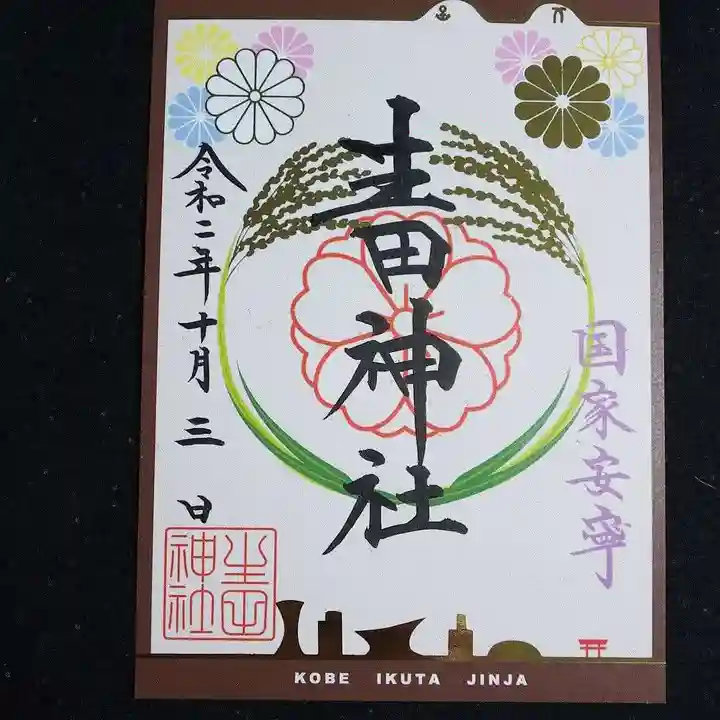 国家安寧
生田神社
令和二年十月三日
生田
神社
KOBE IKUTA JINJA